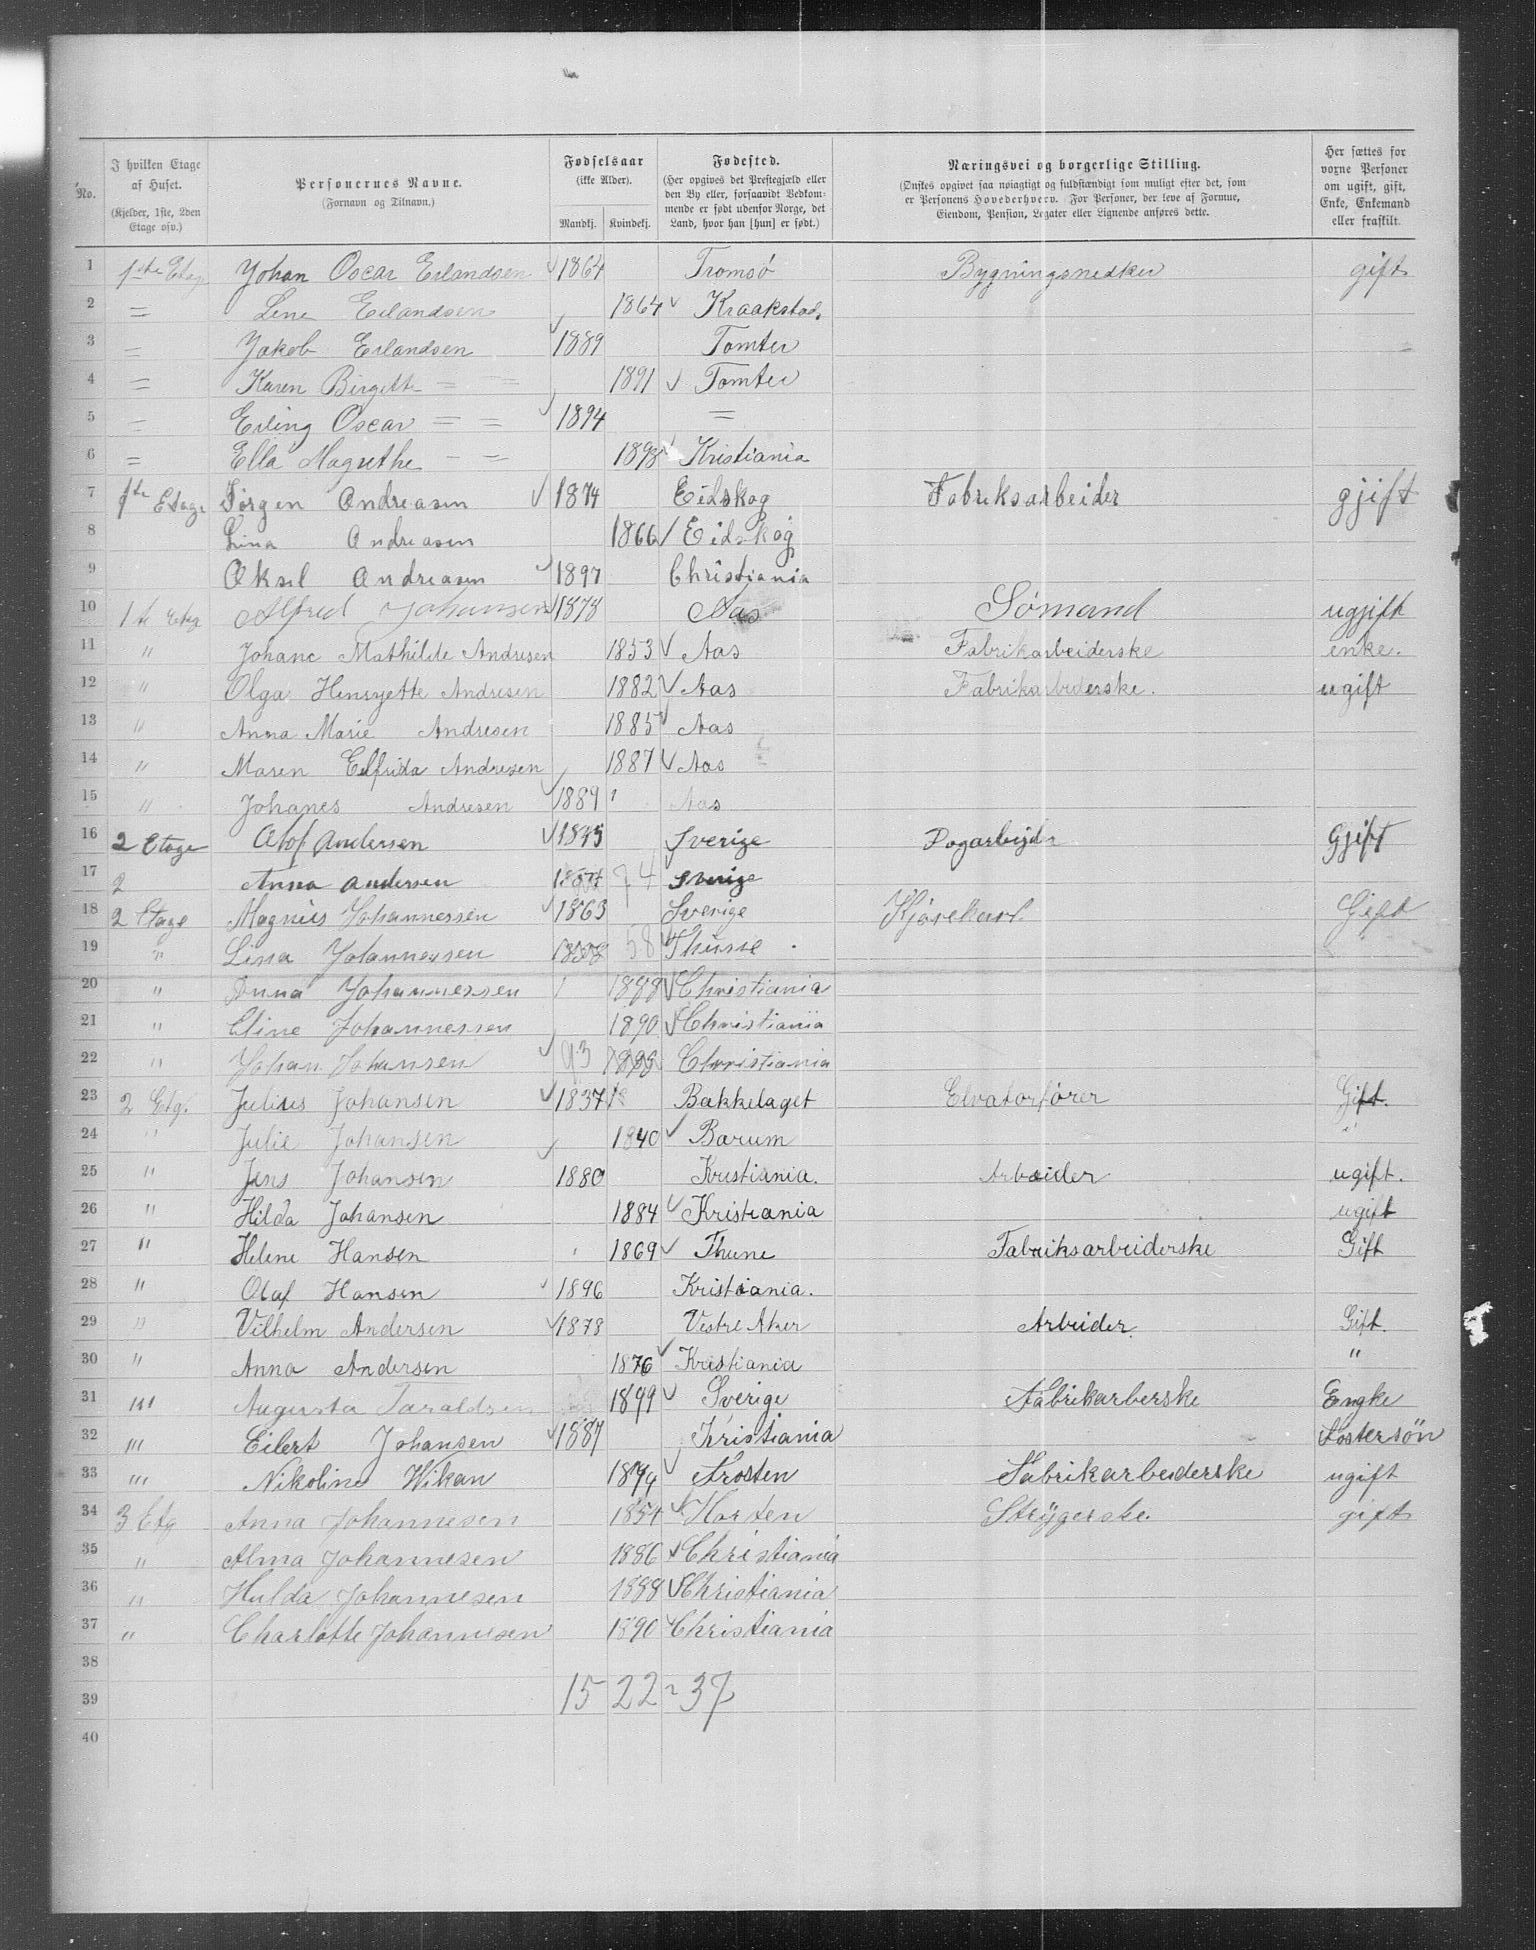 No. | I hvilken Etage af Huset. (Kjelder, 1ste, 2den Etage osv.) | Personernes Navne. (Fornavn og Tilnavn.) | Fødselsaar (ikke Alder). Mandkj. | Kvindekj. | Fødested. (Her opgives det Prestegjæld eller den By eller, forsaavidt Vedkommende er født udenfor Norge, det Land, hvor han [hun] er født.) | Næringsvei og borgerlige Stilling. (Ønskes opgivet saa nøiagtigt og fuldstændigt som muligt efter det, som er Personens Hovederhverv. For Personer, der leve af Formue, Eiendom, Pension, Legater eller Lignende anføres dette. | Her sættes for voxne Personer om ugift, gift, Enke, Enkemand eller fraskilt.
1 1ste Etag Johan Oscar Erlandsen 1864 Tromsø Bygningsnedker gift
2 = Line Erlandsen 1864 Kraakstad.
3 = Jakob Erlandsen 1889 Tomter
4 = Karen Birgitte = = 1891 Tomter
5 = Erling Oscar = = 1894 =
6 = Ella Magrethe - = 1898 Kristiania
7 1te Etage Jørgen Andreasen 1874 Eidskog Fabriksarbeider gjift
8 Lina Andreasen 1866 Eidskog
9 Aksel Andreasen 1897 Christiania
10 1te Etag Alfred Johansen 1878 Aas Sømand ugjift
11 " Johane Mathilde Andresen 1853 Aas Fabrikarbeiderske enke.
12 " Olga Henryette Andresen 1882 Aas Fabrikarbeiderske. ugift
13 " Anna Marie Andresen 1885 Aas
14 " Maren Elfrida Andresen 1887 Aas
15 " Johanes Andresen 1889 Aas
16 2 Etage Olof Andersen 1845 Sverige Dogarbejder Gjift
17 2 Anna Andersen 74 Sverige
18 2 Etage Magnus Johannessen 1863 Sverige Kjørekarl. Gift
19 " Lina Johannessen 1858 58 Thune "
20 " Anna Johannessen 1888 Christiania
21 " Eline Johannessen 1890 Christiania
22 " Johan Johansen 93 Christiania
23 2 Etg. Julius Johansen 1837 Bakkelaget Elvatorfører Gift.
24 " Julie Johansen 1840 Barum "
25 " Jens Johansen 1880 Kristiania. Arbeider ugift.
26 " Hilda Johansen 1884 Kristiania ugift
27 " Helene Hansen 1869 Thune Fabriksarbeiderske Gift
28 " Olaf Hansen 1896 Kristiania.
29 " Vilhelm Andersen 1878 Vestre Aker Arbeider Gift.
30 " Anna Andersen 1876 Kristiania "
31 "' Augusta Taraldsen 1899 Sverige Fabrikarberske Engke
32 "' Eilert Johansen 1887 Kristiania Fostersön
33 "' Nikoline Wikan 1874 Frosten Fabrikarbeiderske ugift
34 3 Etg Anna Johannesen 1854 Horten Strygerske. gift
35 " Alma Johannesen 1886 Christiania
36 " Hulda Johannesen 1888 Christiania
37 " Charlotte Johannesen 1890 Christiania
38
39 15 22 ~ 37
40